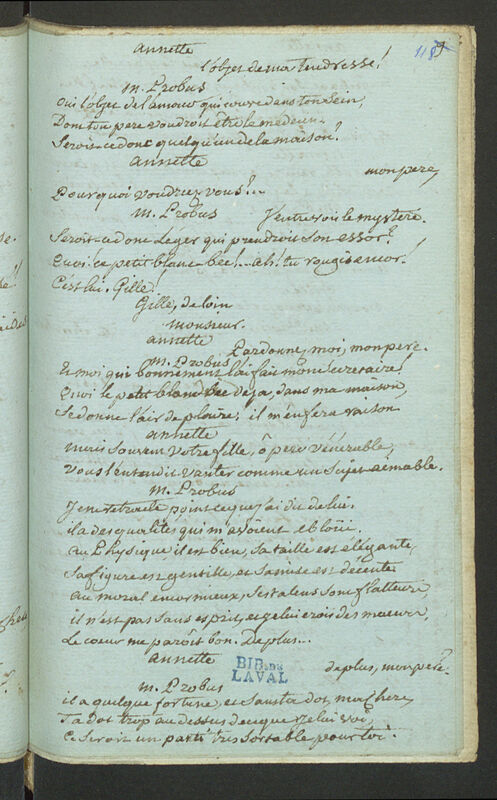 annette
118 9
l'objet de ma tendresse!
m. Probus
oui l'objet de l'amour qui couve dans ton sein,
Dont ton pere voudroit être le medecin.
Seroit-ce donc quelqu'un de la maison?
annette
mon pere,
Pourquoi voudrez-vous?...
m. Probus
J'entrevois le mystere.
Seroit-ce donc Leger qui prendroit son essor?
Quoi ce petit blanc-bec!.. ah! tu rougis encor!
C'est lui. Gille!
Gille, de loin
monsieur.
annette
Pardonne, moi, mon pere.
m. Probus
Et moi qui bonnement l'ai fait mon secretaire!
Quoi le petit blanc bec deja, dans ma maison,
Se donne l'air de plaire; il m'en fera raison
annette
mais souvent votre fille, ô pere vénérable,
Vous l'entendit vanter comme un sujet aimable.
m. Probus
Je ne retracte point ce que j'ai dit de lui.
il a des qualités qui m'avoient ebloüi.
au Physique, il est bien, sa taille est elégante,
Sa figure est gentille, et sa mise est décente
au moral encor mieux, ses talens sont flatteurs,
il n'est pas sans esprit, et je lui crois des moeurs,
Le coeur me paroît bon. De plus...
annette
de plus, mon pere?
BIB. DE
LAVAL
m. Probus
il a quelque fortune, et sans ta dot, ma chere,
Ta dot trop au dessus de ce que je lui voi,
Ce seroit un parti très sortable pour toi.